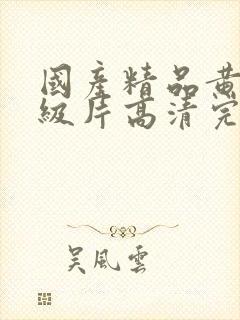 國產精品黄
級片高清完
吴風雲